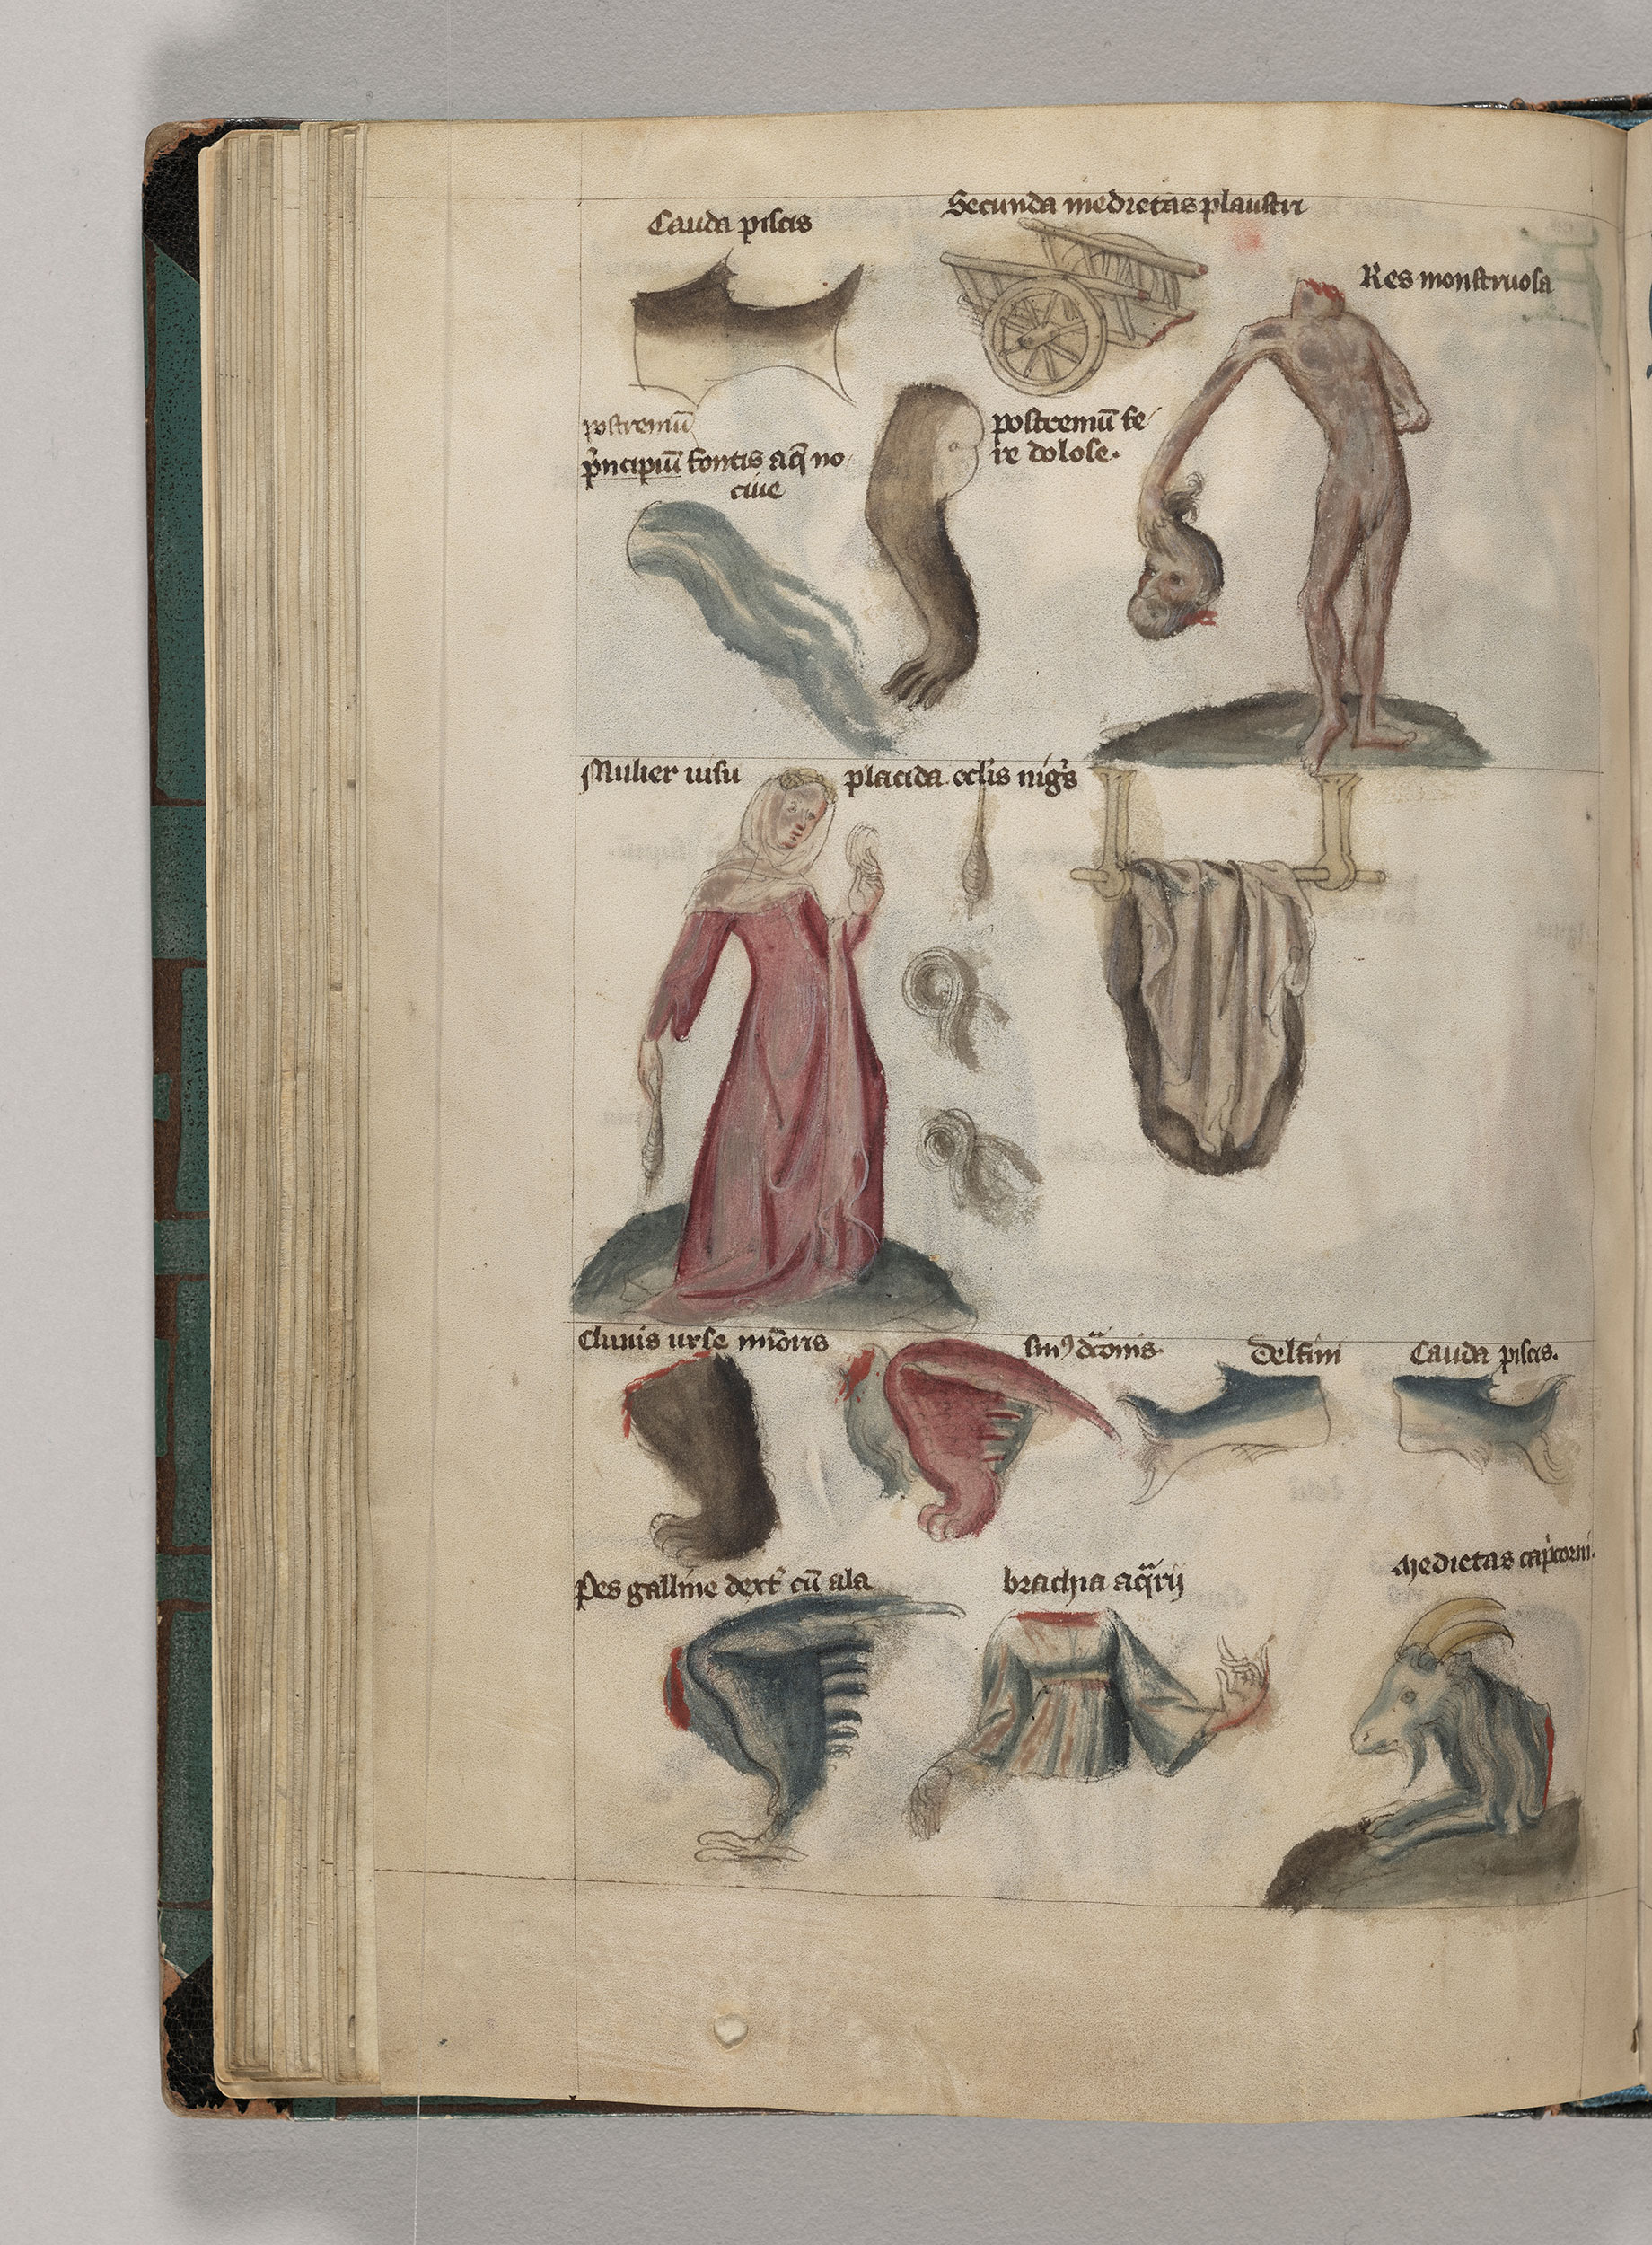 Cauda piscis
Secunda medietas plaustri
Res monstruosa
postremū
pͥncipiū fontis aq̄ no
ciue
postremū fe
re dolose.
Mulier uisu placida oclīs nigͥs
Clunis urse mīoris
sinꝰ dͣconis.
delfini
Cauda piscis.
Pes galline dextͥ cū ala
brachia aqͣrij
Medietas capͥcorni.